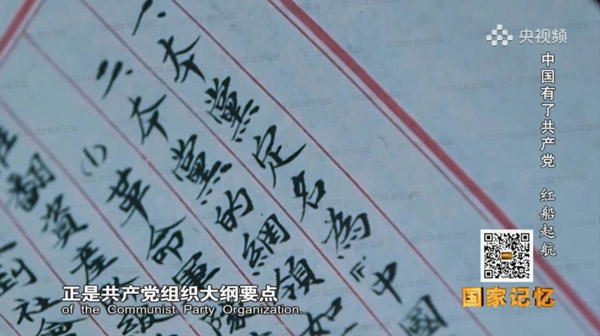 央视频
中国有了共产党 红船起航
一、本黨定名為『中國
二、本黨的綱領如
(1) 革命軍
翻資產
到社會
正是共产党组织大纲要点
of the Communist Party Organization.
国家记忆